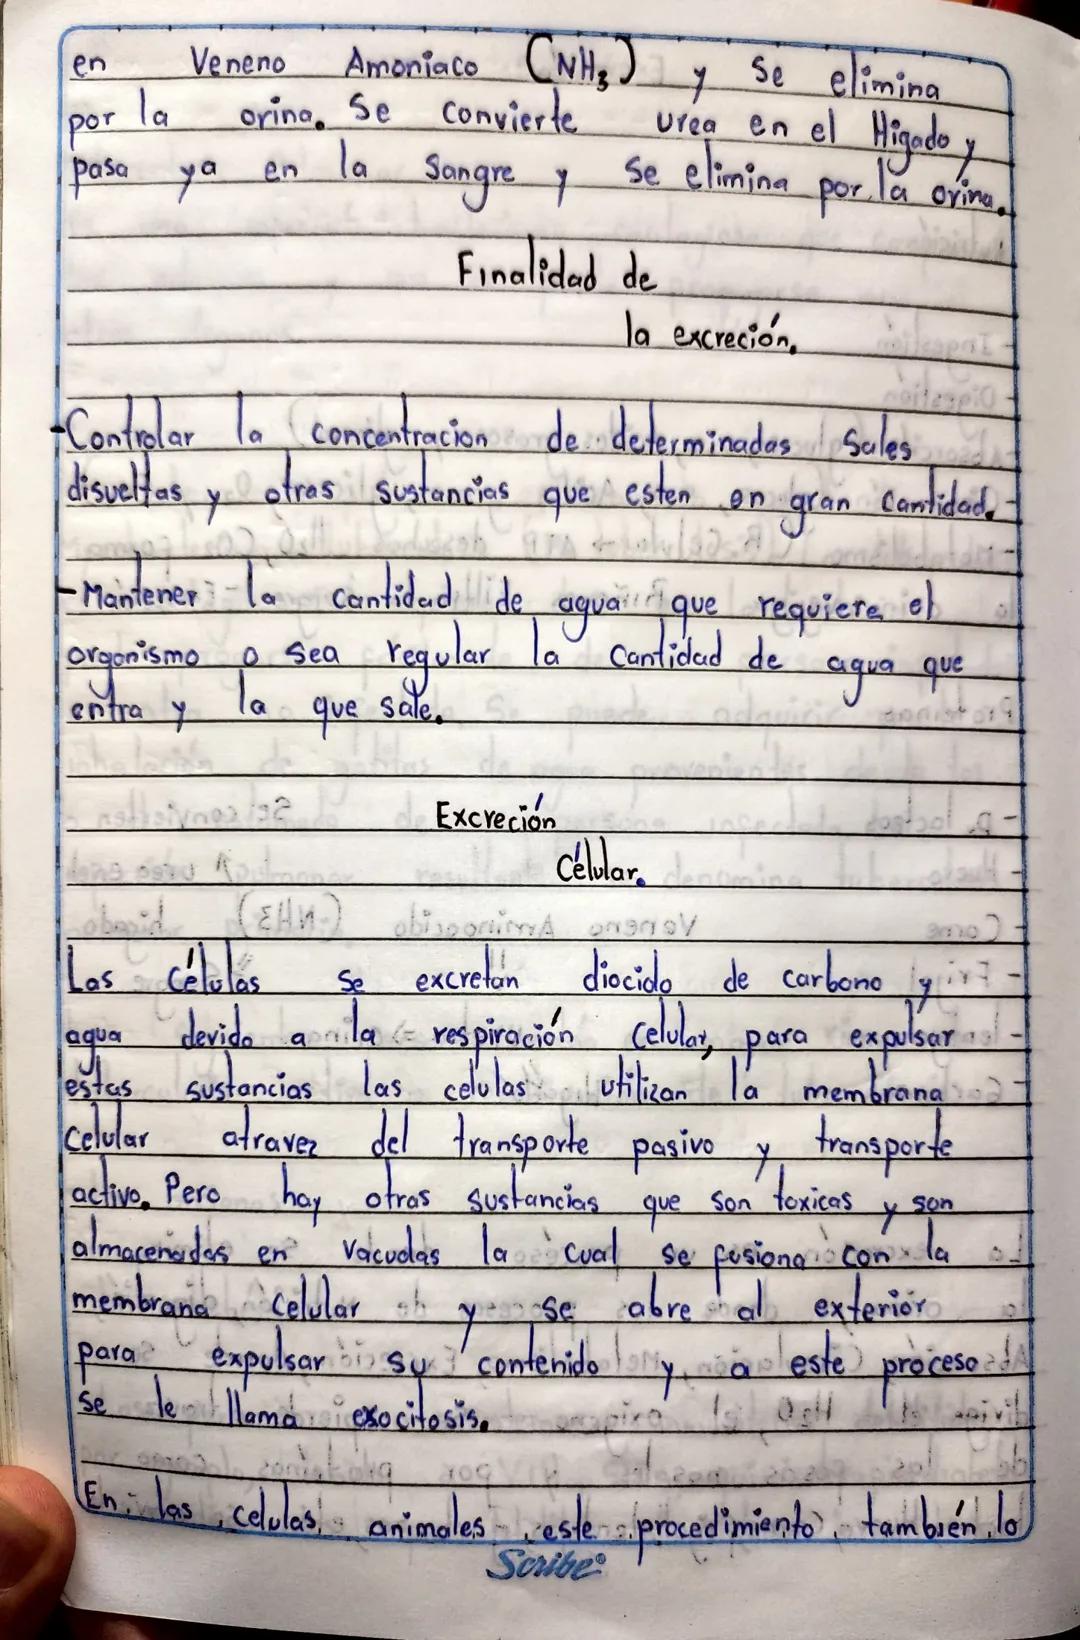 en Veneno Amoniaco (NH₃) y Se elimina
por la orina. Se convierte urea en el Higado y
pasa ya en la Sangre y Se elimina por la orina.
Finalidad de
la excreción.
-Controlar la concentracion de determinadas Sales
disueltas y otras sustancias que esten en gran cantidad.
-Mantener la cantidad de agua que requiere el
organismo o sea regular la Cantidad de agua que
entra y la que sale.
Excreción
Célular.
Las Células se excretan diocido de carbono y
agua devido a la respiración Celular, para expulsar
estas sustancias las celulas utilizan la membrana
Celular atravez del transporte pasivo y transporte
activo. Pero hay otras sustancias que son toxicas y son
almacenadas en Vacuolas la cual se fusiona con la
membrana Celular y se abre al exterior
para expulsar su contenido y a este proceso
se le llama exocitosis.
En las celulas animales este procedimiento también lo
Scribe